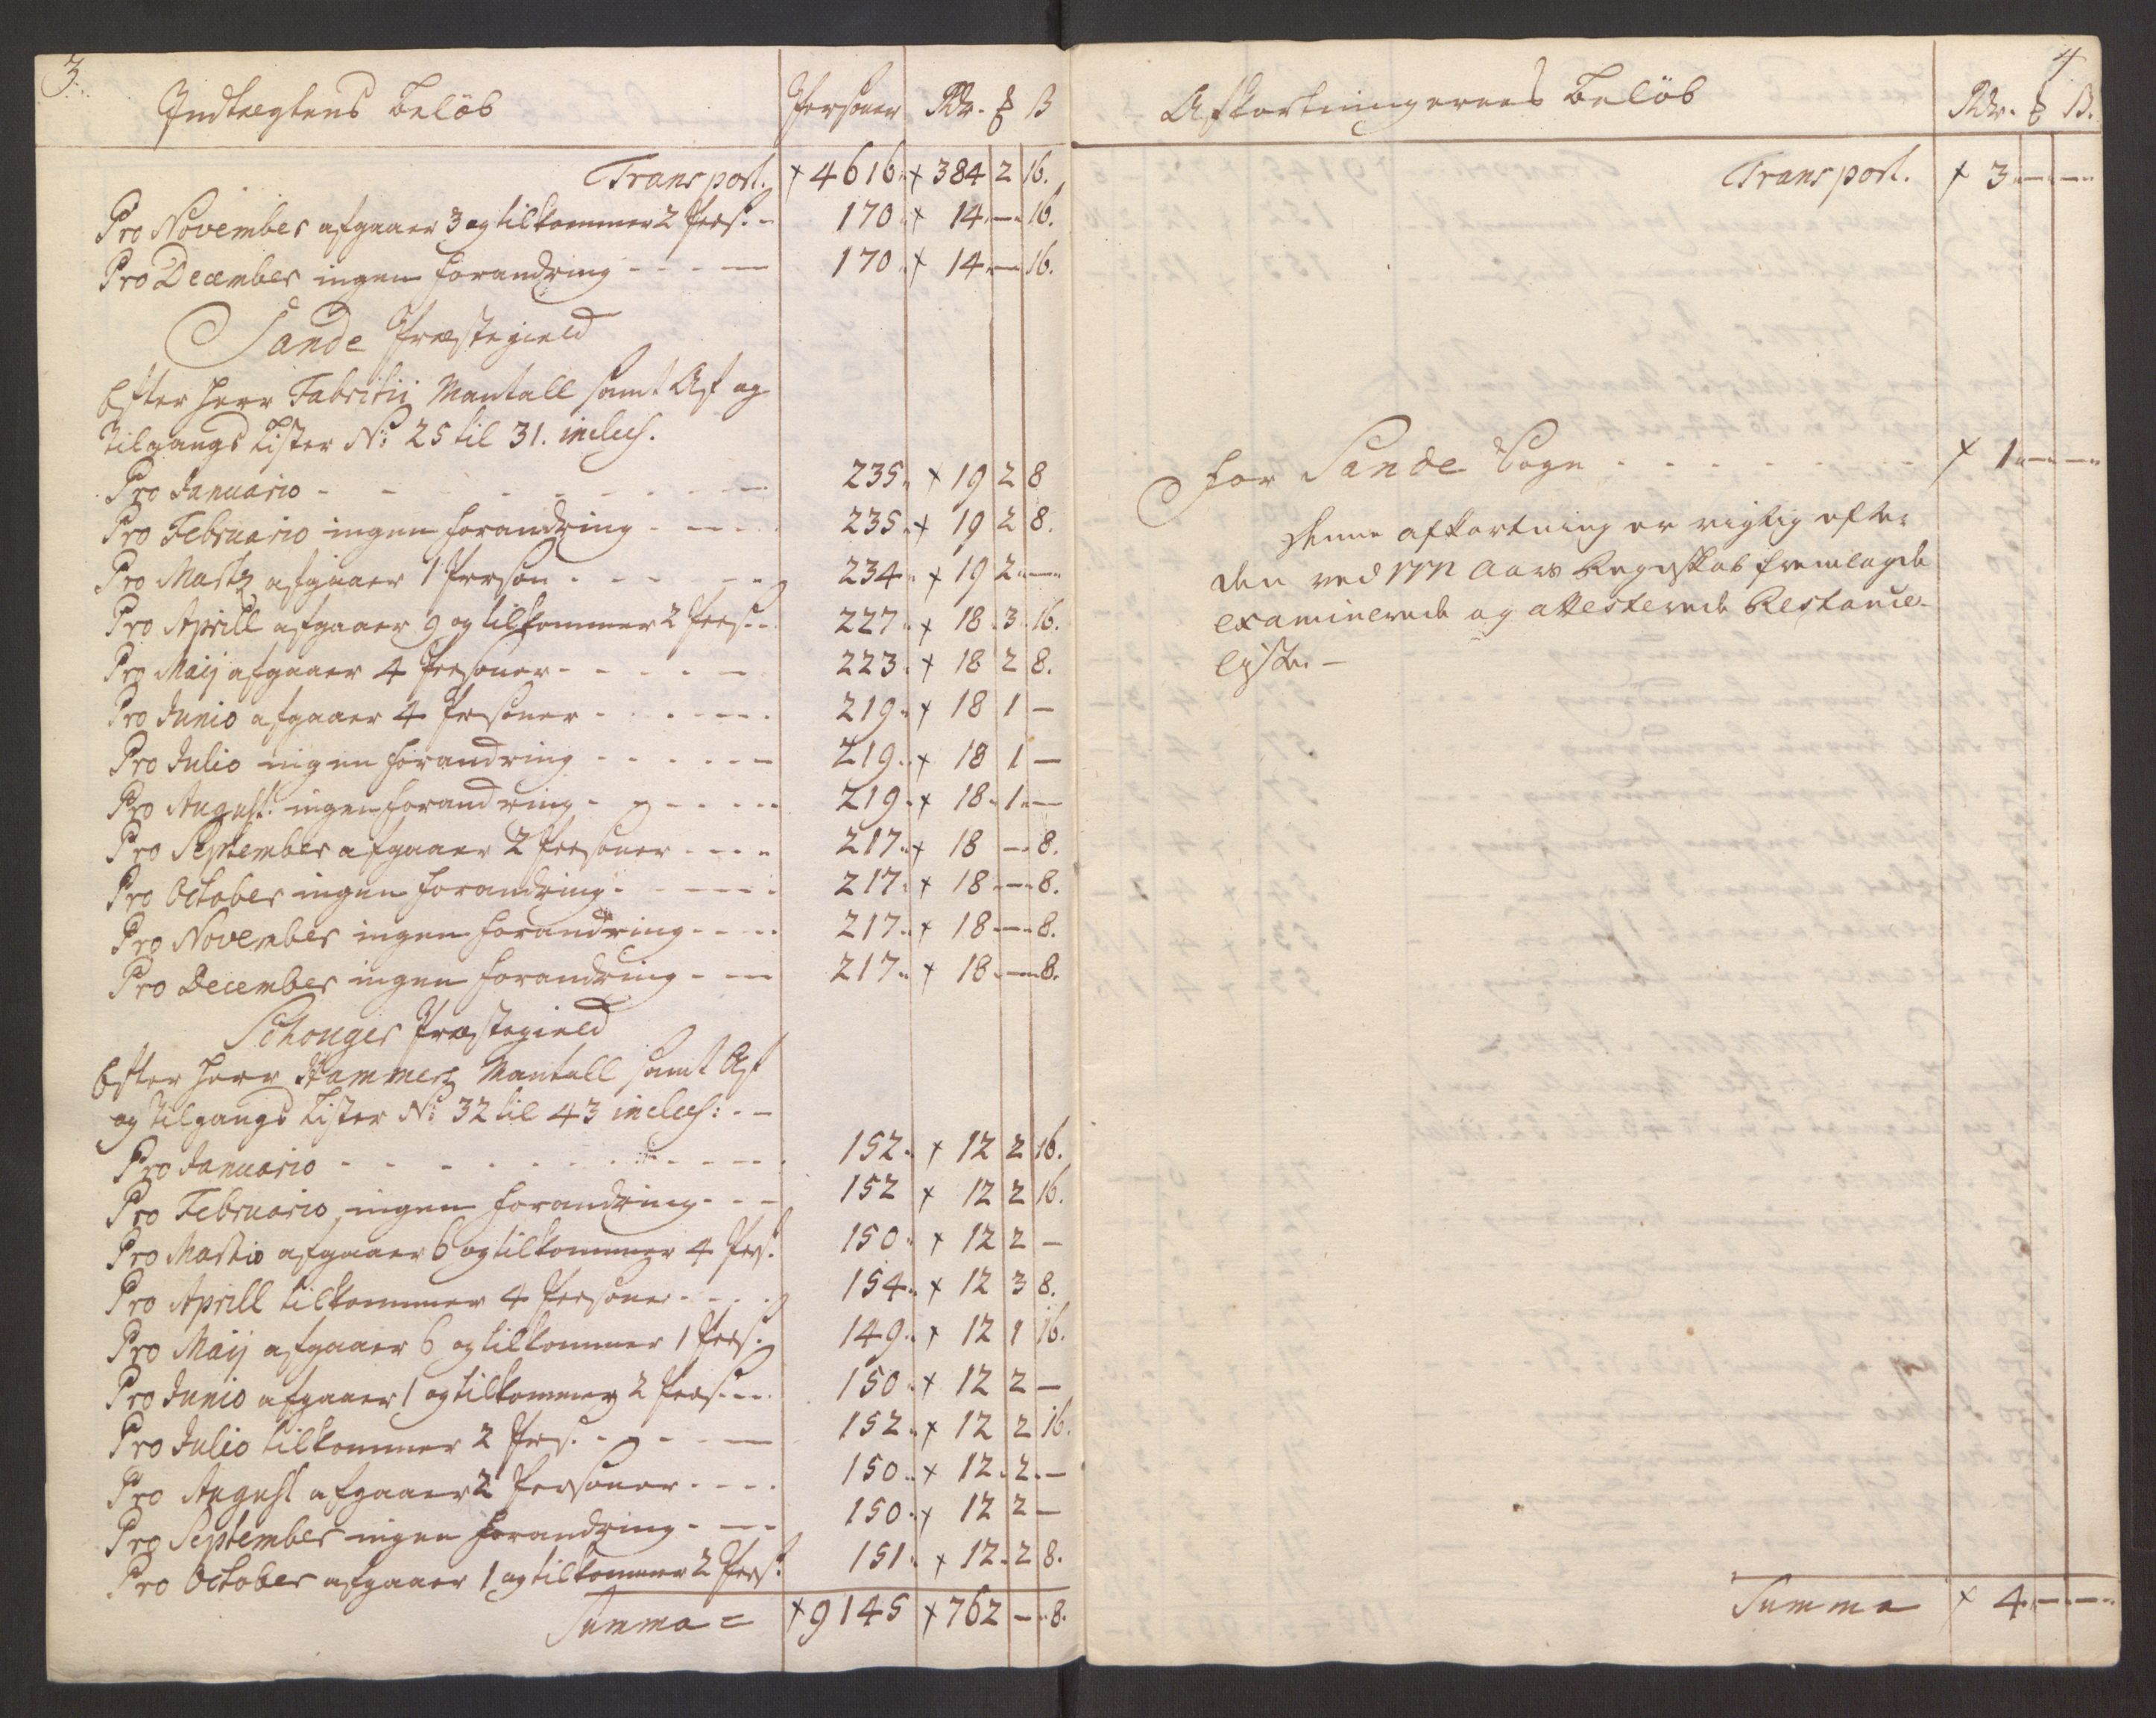 3.
Indtægtens Beløb Personer Rdr. ß
Transport. 4616. 384 2 16.
Pro November afgaaer 3 og tilkommer 2 Pers. 170. 14 — 16.
Pro December ingen forandring 170. 14 — 16.
Sande Præstegield
Efter Herr Fabritij Mantall samt Af og
tilgangs Lister No: 25 til 31. inclus.
Pro Januario 235. 19 2 8
Pro Februario ingen forandring 235. 19 2 8.
Pro Marty afgaaer 1 Person 234. 19 2 —
Pro Aprill afgaaer 9 og tilkommer 2 Pers. 227. 18 3 16.
Pro Maij afgaaer 4 Personer 223. 18 2 8.
Pro Junio afgaaer 4 Personer 219. 18 1 —
Pro Julio ingen forandring 219. 18 1 —
Pro August. ingen forandring 219. 18 1 —
Pro September afgaaer 2 Personer 217. 18 — 8.
Pro October ingen forandring 217. 18 — 8.
Pro November ingen forandring 217. 18 — 8.
Pro December ingen forandring 217. 18 — 8.
Schouger Præstegield
Efter Herr Hammers Mantall samt Af
og tilgangs Lister No: 32 til 43 inclus:
Pro Januario 152. 12 2 16.
Pro Februario ingen forandring 152 12 2 16.
Pro Martio afgaaer 6 og tilkommer 4 Pers. 150. 12 2 —
Pro Aprill tilkommer 4 Personer 154. 12 3 8.
Pro Maij afgaaer 6 og tilkommer 1 Pers. 149. 12 1 16.
Pro Junio afgaaer 1 og tilkommer 2 Pers. 150. 12 2 —
Pro Julio tilkommer 2 Pers. 152. 12 2 16.
Pro August afgaaer 2 Personer 150. 12 2 —
Pro September ingen forandring 150. 12 2 —
Pro October afgaaer 1 og tilkommer 2 Pers. 151. 12 2 8.
Summa = 9145 762 — 8.
4
Afkortningernes Beløb Rdr. ß.
Transport. 3 — —
For Sande Sogn 1 — —
Denne afkortning er rigtig efter
den ved 1772 Aars Regnskab fremlagde
examinerede og attesterede Restance
Liste. —
Summa 4 — —